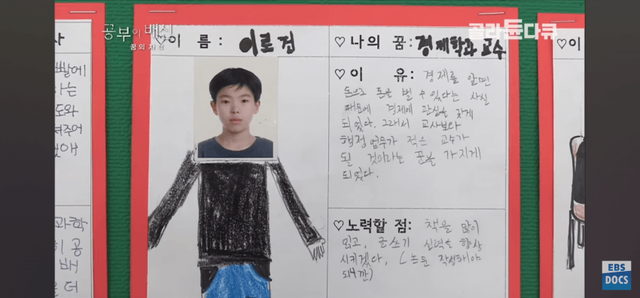 공부의 배신
꿈의 자격
골라듄다큐
♡이 름 : 이로검
♡나의 꿈: 경제학과 교수
♡이 유: 경제를 알면
돈으로 돈을 벌 수 있다는 사실
때문에 경제에 관심을 갖게
되었다. 그래서 교사보다
행정 업무가 적은 교수가
될 것이라는 꿈을 가지게
되었다.
♡노력할 점: 책을 많이
읽고, 글쓰기 실력을 향상
시키겠다. (논문 작성해야
되니까)
EBS
DOCS